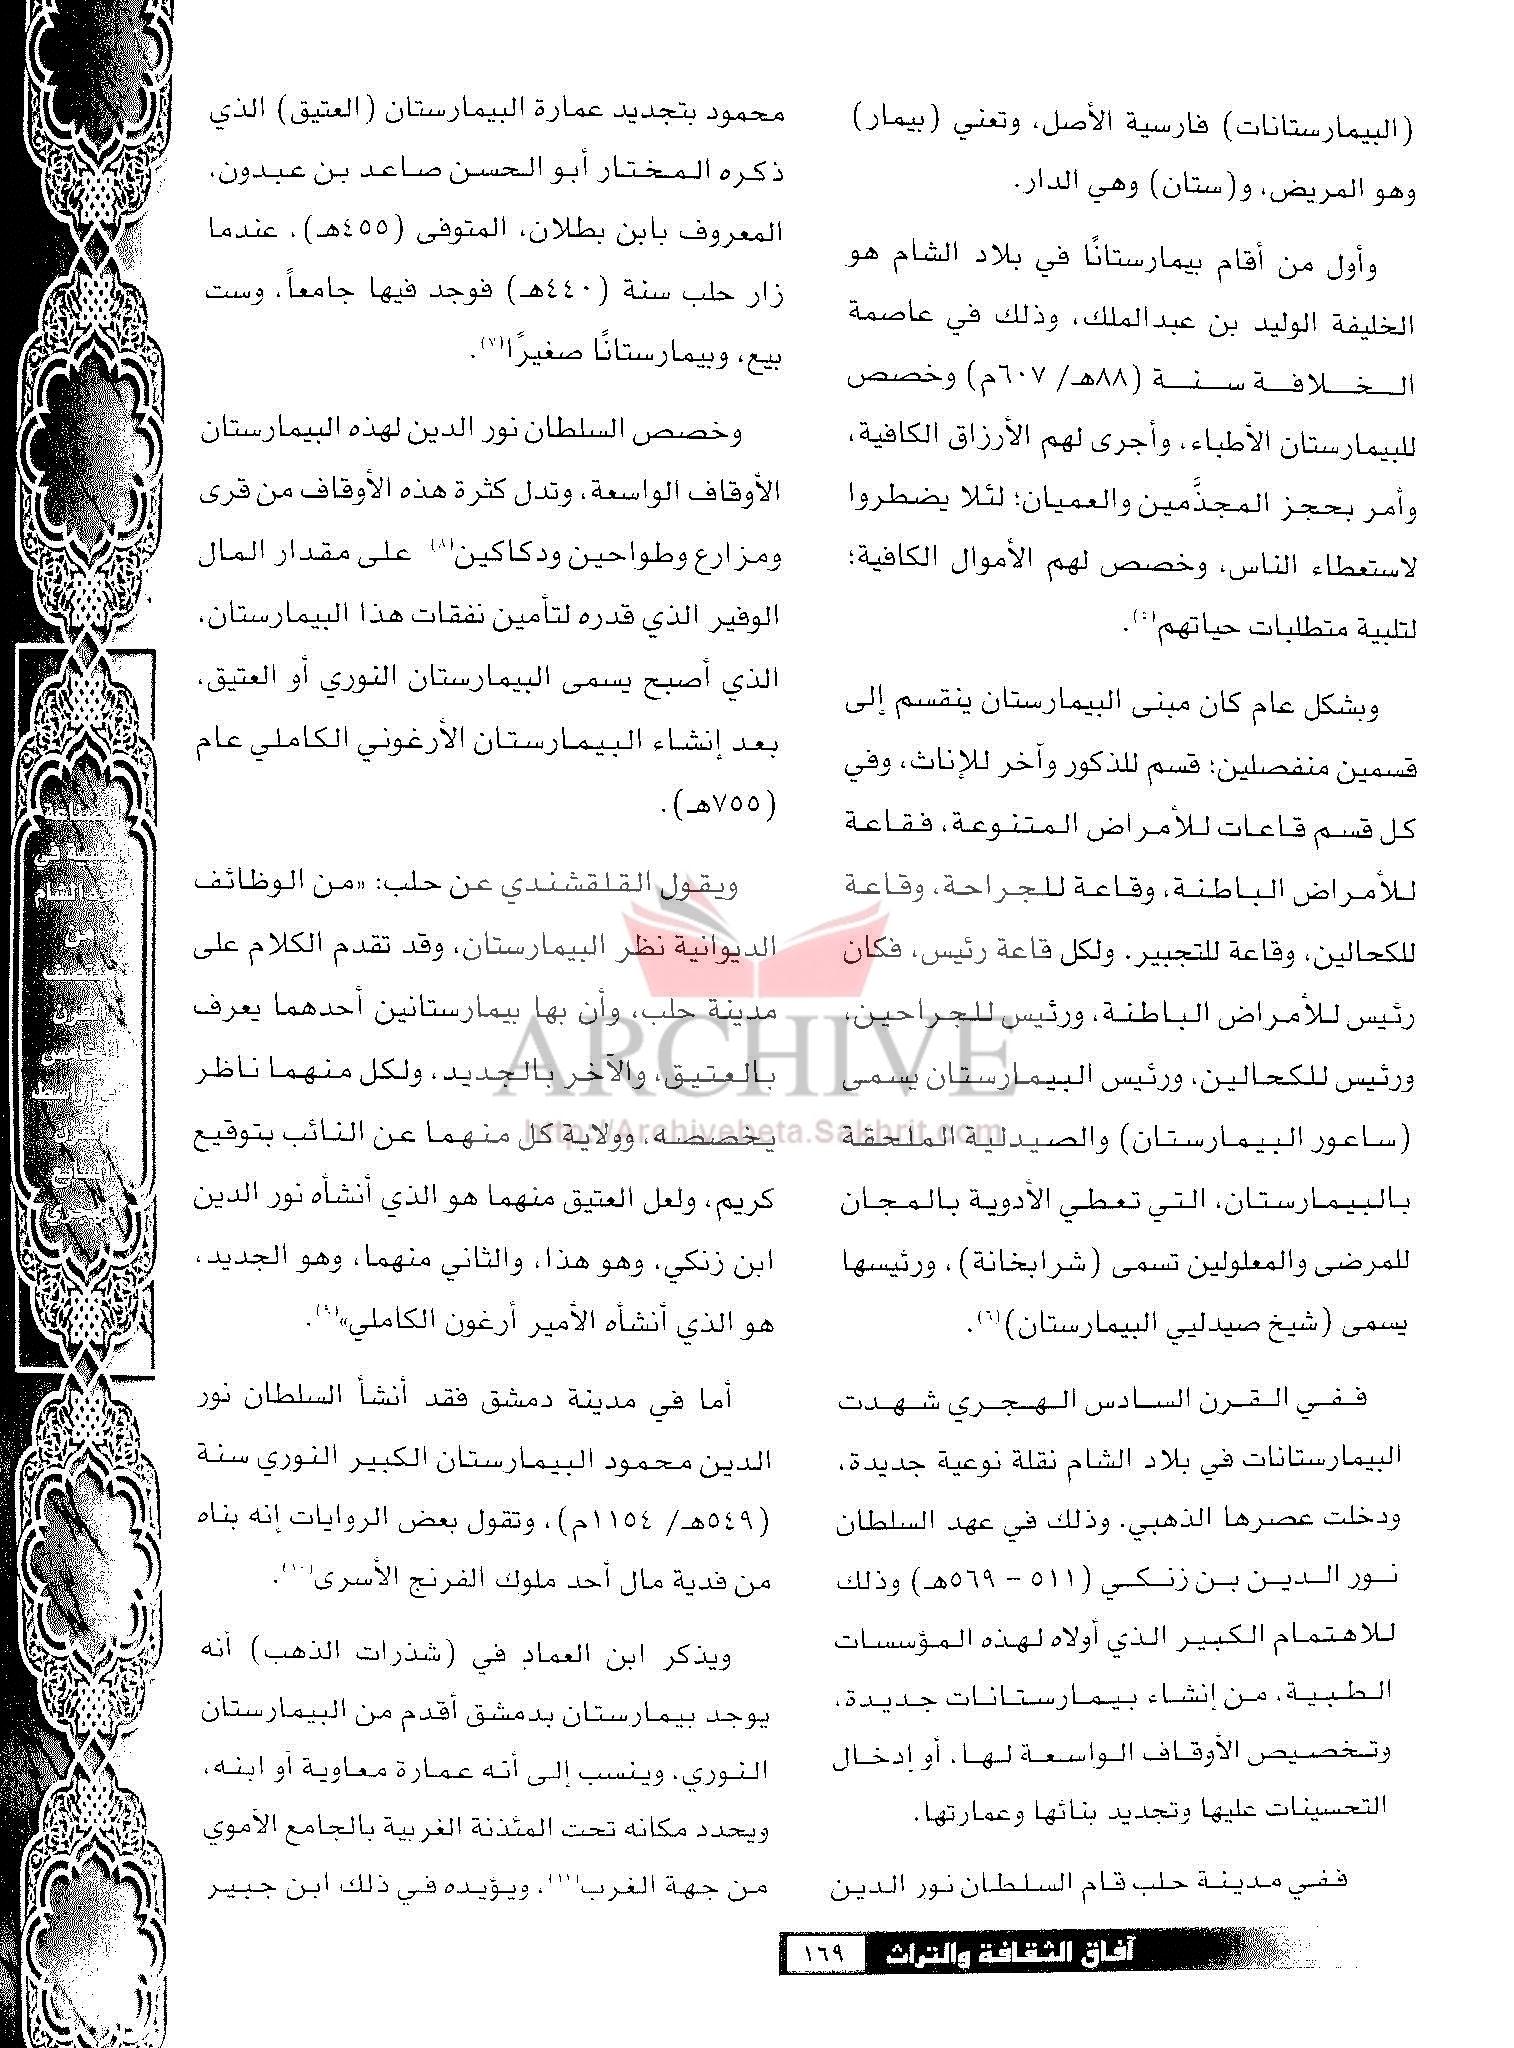 (البيمارستانات) فارسية الأصل، وتعني (بيمار)
وهو المريض، و(ستان) وهي الدار.
وأول من أقام بيمارستانًا في بلاد الشام هو
الخليفة الوليد بن عبدالملك، وذلك في عاصمة
الخلافة سنة (٨٨هـ/ ٦٠٧م) وخصص
للبيمارستان الأطباء، وأجرى لهم الأرزاق الكافية،
وأمر بحجز المجذَّمين والعميان؛ لئلا يضطروا
لاستعطاء الناس، وخصص لهم الأموال الكافية؛
لتلبية متطلبات حياتهم.
وبشكل عام كان مبنى البيمارستان ينقسم إلى
قسمين منفصلين؛ قسم للذكور وآخر للإناث، وفي
كل قسم قاعات للأمراض المتنوعة، فقاعة
للأمراض الباطنة، وقاعة للجراحة، وقاعة
للكحالين، وقاعة للتجبير. ولكل قاعة رئيس، فكان
رئيس للأمراض الباطنة، ورئيس للجراحين،
ورئيس للكحالين، ورئيس البيمارستان يسمى
(ساعور البيمارستان) والصيدلية الملحقة
بالبيمارستان، التي تعطي الأدوية بالمجان
للمرضى والمعلولين تسمى (شرابخانة)، ورئيسها
يسمى (شيخ صيدليي البيمارستان)(٦).
ففي القرن السادس الهجري شهدت
البيمارستانات في بلاد الشام نقلة نوعية جديدة،
ودخلت عصرها الذهبي. وذلك في عهد السلطان
نور الدين بن زنكي (٥١١ - ٥٦٩هـ) وذلك
للاهتمام الكبير الذي أولاه لهذه المؤسسات
الطبية، من إنشاء بيمارستانات جديدة،
وتخصيص الأوقاف الواسعة لها، أو إدخال
التحسينات عليها وتجديد بنائها وعمارتها.
ففي مدينة حلب قام السلطان نور الدين
محمود بتجديد عمارة البيمارستان (العتيق) الذي
ذكره المختار أبو الحسن صاعد بن عبدون،
المعروف بابن بطلان، المتوفى (٤٥٥هـ)، عندما
زار حلب سنة (٤٤٠هـ) فوجد فيها جامعاً، وست
بيع، وبيمارستانًا صغيرًا(٧).
وخصص السلطان نور الدين لهذه البيمارستان
الأوقاف الواسعة، وتدل كثرة هذه الأوقاف من قرى
ومزارع وطواحين ودكاكين(٨) على مقدار المال
الوفير الذي قدره لتأمين نفقات هذا البيمارستان،
الذي أصبح يسمى البيمارستان النوري أو العتيق،
بعد إنشاء البيمارستان الأرغوني الكاملي عام
(٧٥٥هـ).
ويقول القلقشندي عن حلب: «من الوظائف
الديوانية نظر البيمارستان، وقد تقدم الكلام على
مدينة حلب، وأن بها بيمارستانين أحدهما يعرف
بالعتيق، والآخر بالجديد، ولكل منهما ناظر
يخصصه، وولاية كل منهما عن النائب بتوقيع
كريم، ولعل العتيق منهما هو الذي أنشأه نور الدين
ابن زنكي، وهو هذا، والثاني منهما، وهو الجديد،
هو الذي أنشأه الأمير أرغون الكاملي»(٩).
أما في مدينة دمشق فقد أنشأ السلطان نور
الدين محمود البيمارستان الكبير النوري سنة
(٥٤٩هـ/ ١١٥٤م)، وتقول بعض الروايات إنه بناه
من فدية مال أحد ملوك الفرنج الأسرى(١٠).
ويذكر ابن العماد في (شذرات الذهب) أنه
يوجد بيمارستان بدمشق أقدم من البيمارستان
النوري، وينسب إلى أنه عمارة معاوية أو ابنه،
ويحدد مكانه تحت المئذنة الغربية بالجامع الأموي
من جهة الغرب(١١)، ويؤيده في ذلك ابن جبير
آفاق الثقافة والتراث ١٦٩
ARCHIVE
http://Archivebeta.Sakhrit.com